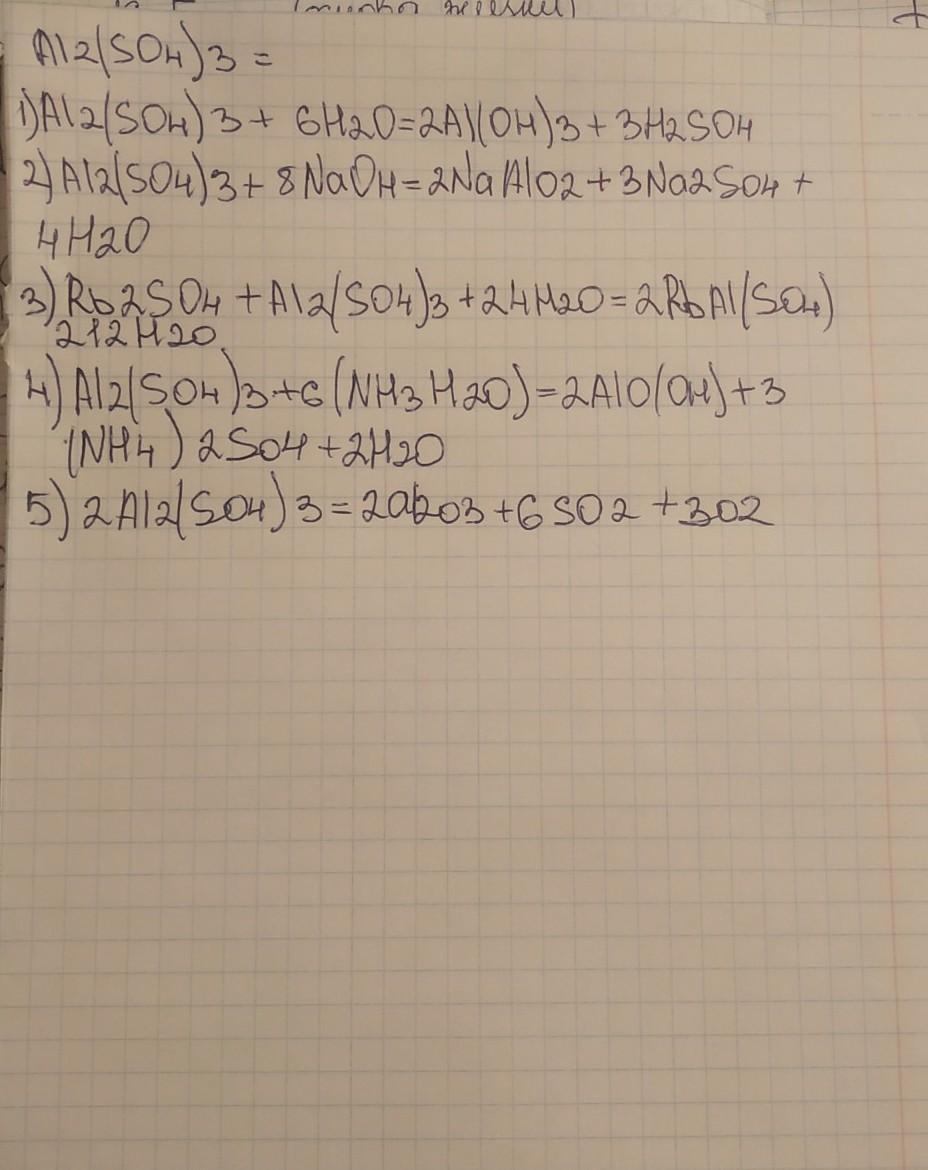 Al2(SO4)3 =
1)Al2(SO4)3+ 6H2O=2Al(OH)3+3H2SO4
2)Al2(SO4)3+8NaOH=2NaAlO2+3Na2SO4+
4H2O
3)Rb2SO4+Al2(SO4)3+24H2O=2RbAl(SO4)
212H2O
4)Al2(SO4)3+6(NH3H2O)=2AlO(OH)+3
(NH4)2SO4+2H2O
5)2Al2(SO4)3=2al2o3+6SO2+3O2